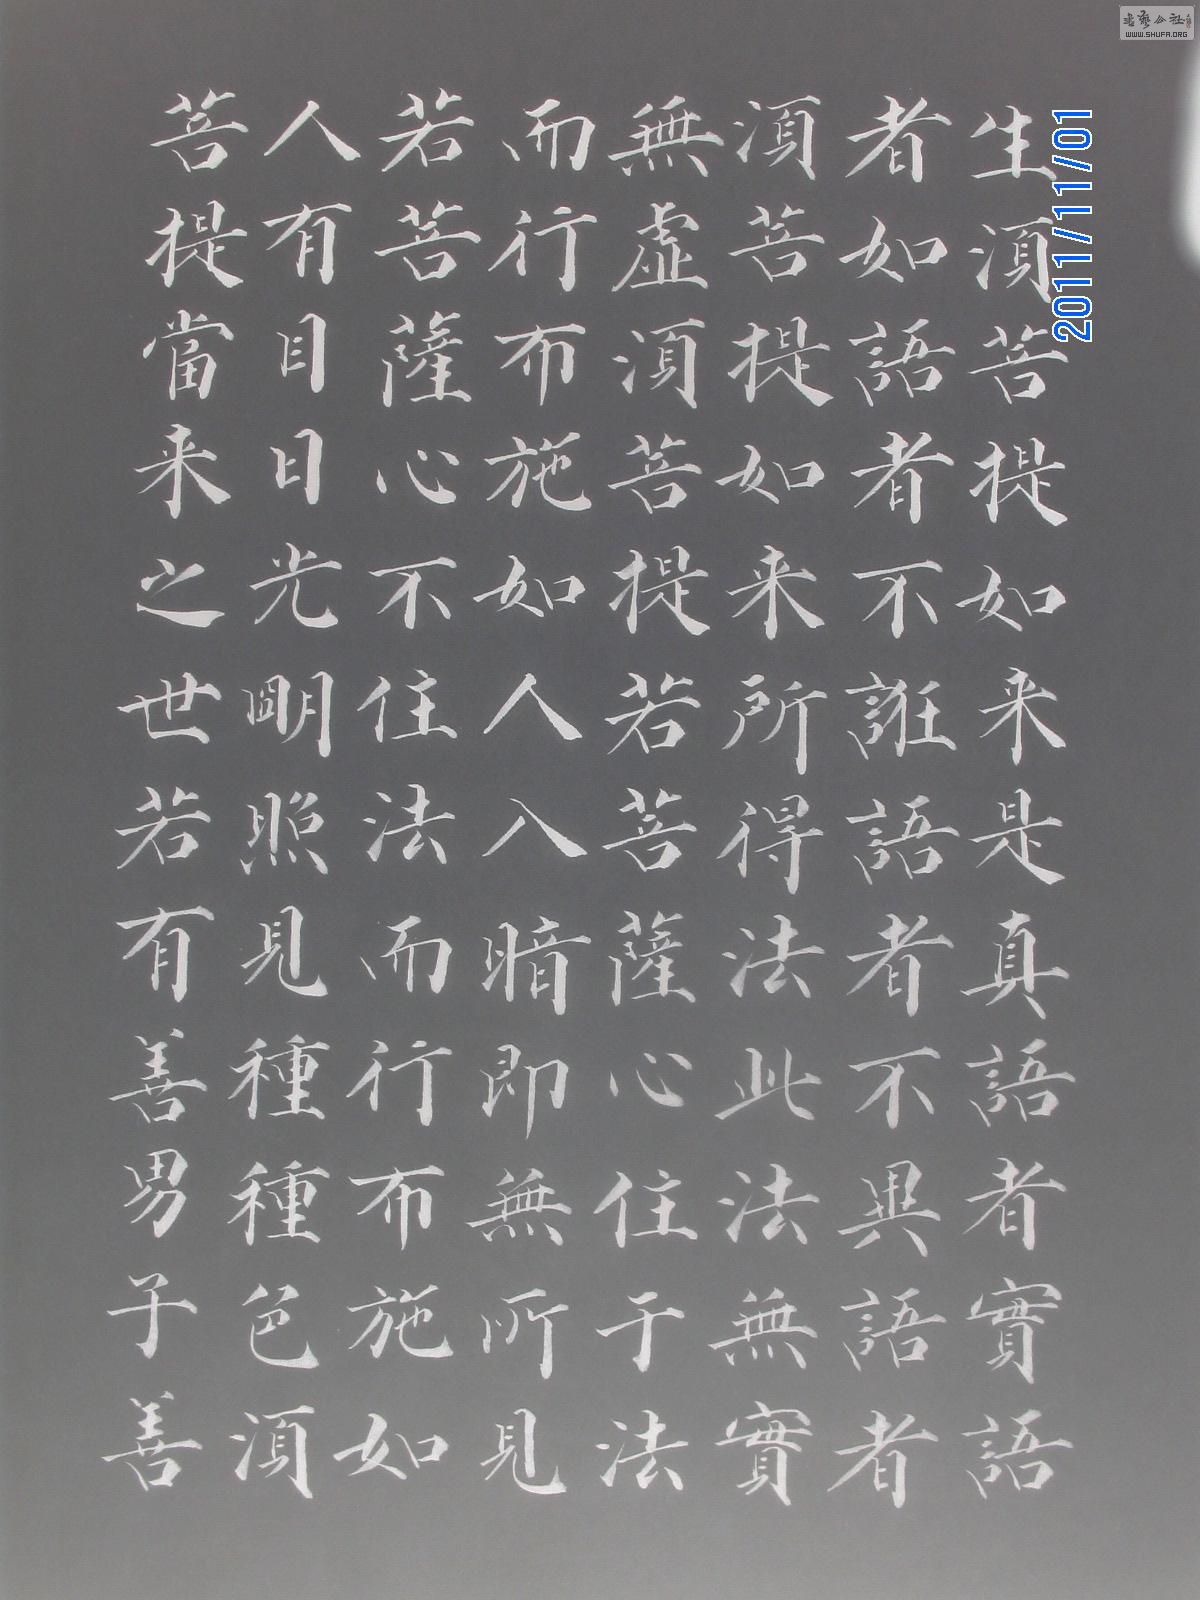 生湏菩提如来是真語者實語
者如語者不誑語者不異語者
湏菩提如来所得法此法無實
無虚湏菩提若菩薩心住于法
而行布施如人入暗即無所見
若菩薩心不住法而行布施如
人有目日光朙照見種種色湏
菩提當来之世若有善男子善
2011/11/01
書藝公社
WWW.SHUFA.ORG